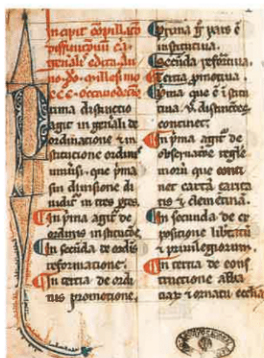 Incipit co͂pilatio
diffinitionu͂ ca
gen̄ali edita. An
no. Do. Millesimo
CCC. octauodecimo.
Prima distinctio
agit in gen̄ali de
ordinatione ⁊ in
stitutione ordinis
nr̄i. que prima
in
uidit in tres ptes.
In p̄ma agit̄ de
ordinis institutōe.
In secūda de ordīs
reformatione.
In tertia de ordi
nis promotione.
Prima pars ē
institutiua.
Secūda reformatiua.
Tertia promotiua
Prima que ē insti
tutiua. v. distinctōes
continet.
In p̄ma agit̄ de
obseruatiōe regule
que conti
net carta carita
tis ⁊ clementina.
In secunda de ex
positione libertatū
⁊ priuilegiorum.
In tertia de cons
tructione abba
tiarū ⁊ ornatu